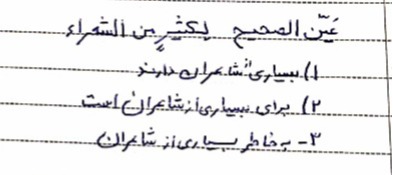 عَیّن الصحیح لکثیرٍ من الشعراء
۱) بسیاری از شاعران دارند
۲) برای بسیاری از شاعران است
۳- به خاطر بسیاری از شاعران